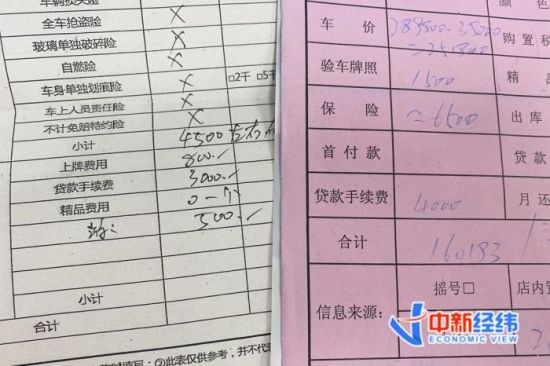 车辆损失险
全车抢盗险 ×
玻璃单独破碎险 ×
自燃险
车身单独划痕险 × □2千 □5千
车上人员责任险 ×
不计免赔特约险 ×
小计 4500 左右
上牌费用 800.
贷款手续费 3000.
精品费用 0一个
300.
小计
合计
②此表仅供参考，并不代表
颜色
车价 283500-35000 购置税
验车牌照 1500 精品
保险 ≈6500 出库
首付款 贷款
贷款手续费 4000 月还
合计 160193
信息来源： 摇号□ 店内置
中新经纬
ECONOMIC VIEW